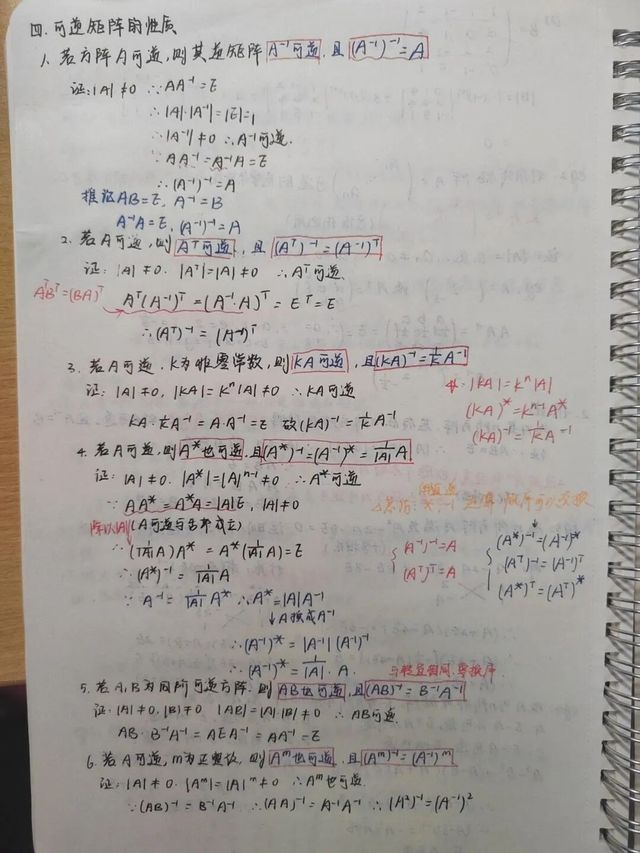 四.可逆矩阵的性质
1. 若方阵A可逆,则其逆矩阵 A⁻¹可逆,且 (A⁻¹)⁻¹=A
证:|A|≠0 ∴AA⁻¹=E
∴|A|·|A⁻¹|=|E|=1
∴|A⁻¹|≠0 ∴A⁻¹可逆.
∵AA⁻¹=A⁻¹A=E
∴(A⁻¹)⁻¹=A
推论AB=E, A⁻¹=B
A⁻¹A=E, (A⁻¹)⁻¹=A
2. 若A可逆,则 Aᵀ可逆,且 (Aᵀ)⁻¹=(A⁻¹)ᵀ
证: |A|≠0. |Aᵀ|=|A|≠0 ∴Aᵀ可逆
AᵀBᵀ=(BA)ᵀ
Aᵀ(A⁻¹)ᵀ=(A⁻¹·A)ᵀ=Eᵀ=E
∴(Aᵀ)⁻¹=(A⁻¹)ᵀ
3. 若A可逆.K为非零常数,则 KA可逆,且(KA)⁻¹=1/K A⁻¹
证:|A|≠0, |KA|=Kⁿ|A|≠0 ∴KA可逆
KA·1/K A⁻¹=A·A⁻¹=E 故(KA)⁻¹=1/K A⁻¹
|KA|=Kⁿ|A|
(KA)*=Kⁿ⁻¹A*
(KA)⁻¹=1/K A⁻¹
4. 若A可逆,则A*也可逆,且(A*)⁻¹=(A⁻¹)*=1/|A| A
证: |A|≠0. |A*|=|A|ⁿ⁻¹≠0 ∴A*可逆
∵AA*=A*A=|A|E, |A|≠0
除以|A| (A可逆与否都成立)
∴(1/|A| A)A*=A*(1/|A| A)=E
∴(A*)⁻¹=1/|A| A
∵A⁻¹=1/|A| A* ∴A*=|A|A⁻¹
↓A换成A⁻¹
∴(A⁻¹)*=|A⁻¹|(A⁻¹)⁻¹
∴(A⁻¹)*=1/|A|·A.
△总结:*.-1 运算顺序可交换
(A⁻¹)⁻¹=A
(Aᵀ)ᵀ=A
(A*)⁻¹=(A⁻¹)*
(Aᵀ)⁻¹=(A⁻¹)ᵀ
(A*)ᵀ=(Aᵀ)*
与转置相同,要换序
5. 若A,B为同阶可逆方阵.则 AB也可逆,且(AB)⁻¹=B⁻¹A⁻¹
证:|A|≠0,|B|≠0 |AB|=|A|·|B|≠0 ∴AB可逆.
AB·B⁻¹A⁻¹=AEA⁻¹=AA⁻¹=E
6. 若A可逆,m为正整数,则 Aᵐ也可逆,且(Aᵐ)⁻¹=(A⁻¹)ᵐ
证:|A|≠0.|Aᵐ|=|A|ᵐ≠0 ∴Aᵐ也可逆.
∵(AB)⁻¹=B⁻¹A⁻¹ ∴(AA)⁻¹=A⁻¹A⁻¹ ∴(A²)⁻¹=(A⁻¹)²